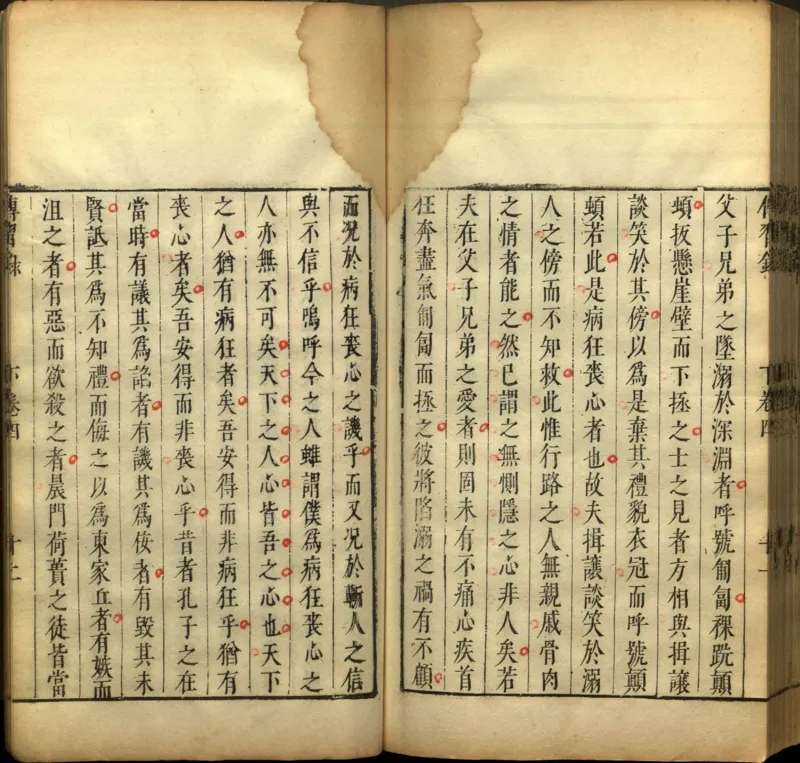 傳習錄 下卷四 十一
父子兄弟之墜溺於深淵者呼號匍匐裸跣顛
頓扳懸崖壁而下拯之士之見者方相與揖讓
談笑於其傍以為是棄其禮貌衣冠而呼號顛
頓若此是病狂喪心者也故夫揖讓談笑於溺
人之傍而不知救此惟行路之人無親戚骨肉
之情者能之然已謂之無惻隱之心非人矣若
夫在父子兄弟之愛者則固未有不痛心疾首
狂奔盡氣匍匐而拯之彼將陷溺之禍有不顧
而況於病狂喪心之譏乎而又況於蘄人之信
與不信乎嗚呼今之人雖謂僕為病狂喪心之
人亦無不可矣天下之人心皆吾之心也天下
之人猶有病狂者矣吾安得而非病狂乎猶有
喪心者矣吾安得而非喪心乎昔者孔子之在
當時有議其為諂者有譏其為佞者有毀其未
賢詆其為不知禮而侮之以為東家丘者有嫉而
沮之者有惡而欲殺之者晨門荷蕢之徒皆當
傳習錄 下卷四 十二